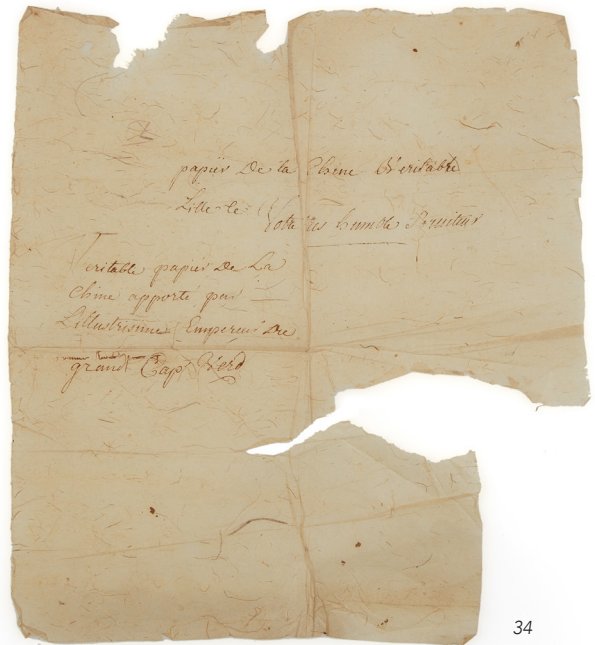 papier De la Chine Veritable
Lille le
Votre tres humble Serviteur
Veritable papier De La
Chine apporté par
L'illustrisime Empereur Du
grand Cap Verd
34